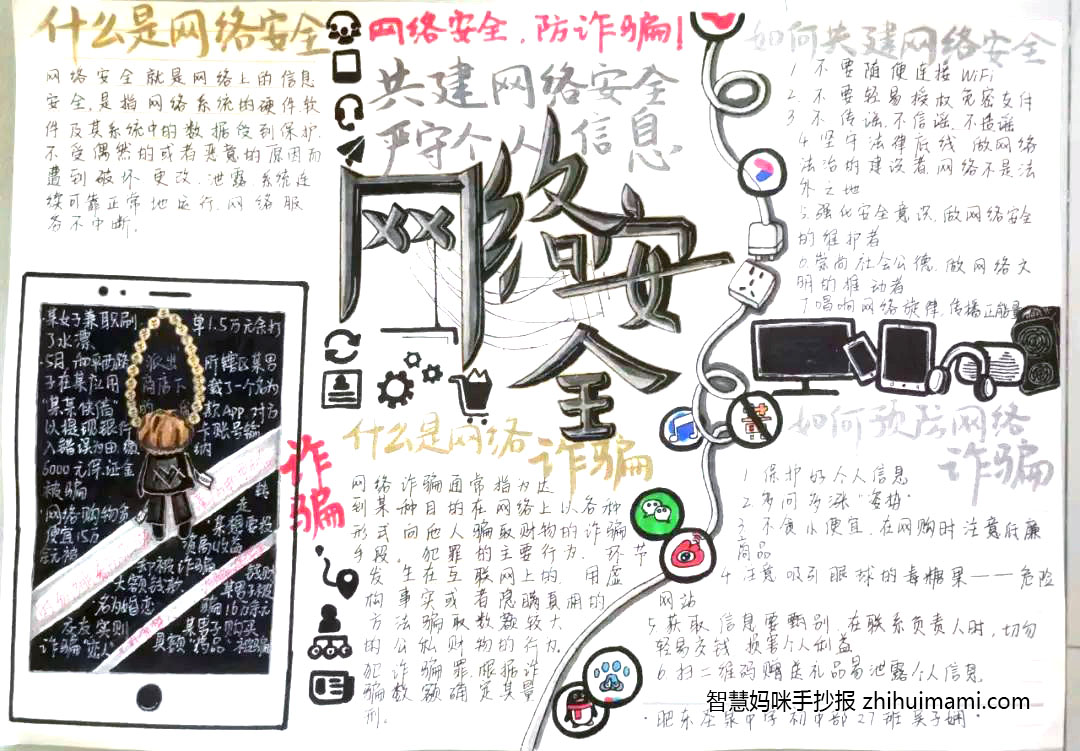 什么是网络安全
网络安全就是网络上的信息
安全,是指网络系统的硬件软
件及其系统中的数据受到保护.
不受偶然的或者恶意的原因而
遭到破坏.更改.泄露.系统连
续可靠正常地运行.网络服
务不中断.
网络安全,防诈骗!
共建网络安全
严守个人信息
网络安全
如何共建网络安全
1.不要随便连接WiFi
2.不要轻易授权免密支付
3.不传谣.不信谣.不造谣
4.坚守法律底线.做网络
法治的建设者.网络不是法
外之地
5.强化安全意识.做网络安全
的维护者
6.崇尚社会公德.做网络文
明的推动者
7.唱响网络旋律,传播正能量
·某女子兼职刷
单1.5万元余打
了水漂
·5月,和平西路派出所辖区某男
子在某应用商店下载了一个名为
"某某快借"的
款App.对方
以提现银行卡账号输
入错误为由,缴纳
6000元保证金
被骗
·网络购物贪
便宜15万
诈骗
什么是网络诈骗
网络诈骗通常指为达
到某种目的在网络上以各种
形式向他人骗取财物的诈骗
手段。犯罪的主要行为.环节
发生在互联网上的.用虚
构事实或者隐瞒真相的
方法骗取数额较大
的公私财物的行为.
犯诈骗罪.根据诈
骗数额确定其量
刑.
如何预防网络
诈骗
1.保护好个人信息
2.多问多涨"姿势"
3.不贪小便宜.在网购时注意低廉
商品
4.注意吸引眼球的毒糖果——危险
网站
5.获取信息要甄别.在联系负责人时,切勿
轻易交钱.损害个人利益
6.扫二维码赠送礼品易泄露个人信息
智慧妈咪手抄报 zhihuimami.com